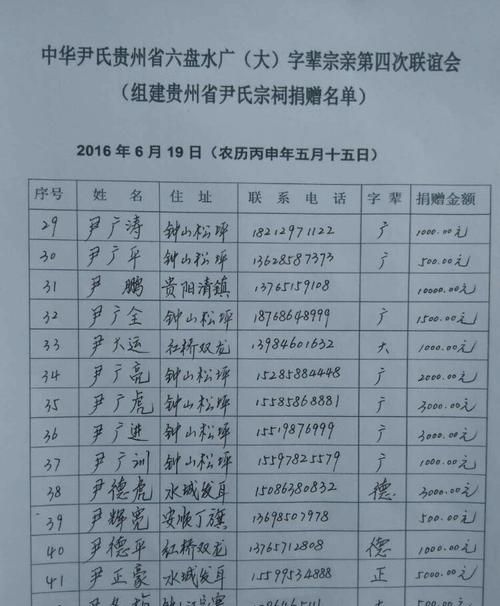 中华尹氏贵州省六盘水广（大）字辈宗亲第四次联谊会
（组建贵州省尹氏宗祠捐赠名单）
2016年6月19日（农历丙申年五月十五日）
序号 姓名 住址 联系电话 字辈 捐赠金额
29 尹广涛 钟山松坪 18212971122 广 1000.00元
30 尹广平 钟山松坪 13628587373 广 500.00元
31 尹鹏 贵阳清镇 13765159108 10000.00元
32 尹广全 钟山松坪 18768648999 广 1500.00元
33 尹大运 红桥双龙 13984601632 大 1000.00元
34 尹广亮 钟山松坪 15285884448 广 2000.00元
35 尹广虎 钟山松坪 15585868881 广 3000.00元
36 尹广进 钟山松坪 15519876999 广 3000.00元
37 尹广训 钟山松坪 15597825579 广 1000.00元
38 尹德虎 水城发耳 15086380832 德 3000.00元
39 尹辉宽 安顺丁旗 13698507978 500.00元
40 尹德平 红桥双龙 13765712808 德 1000.00元
41 尹正豪 水城发耳 15599534888 正 5000.00元